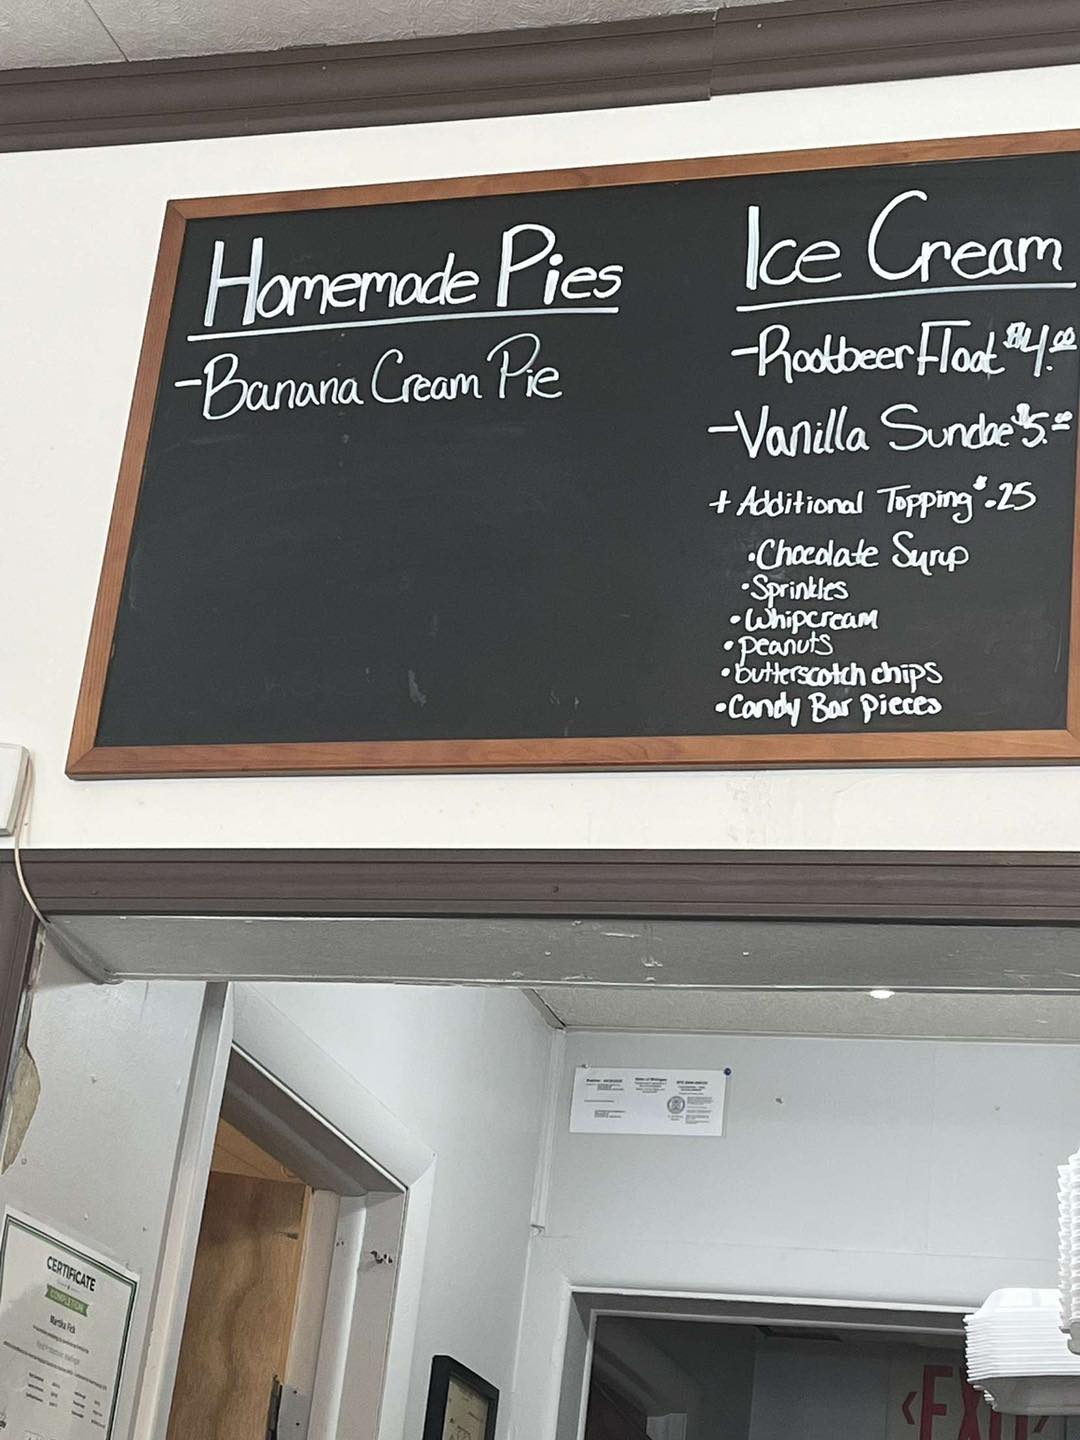 Homemade Pies
-Banana Cream Pie
Ice Cream
-Rootbeer Float $4.00
-Vanilla Sundae $5.00
+ Additional Topping $.25
•Chocolate Syrup
•Sprinkles
•Whipcream
•peanuts
•butterscotch chips
•Candy Bar pieces
CERTIFICATE
COMPLETION
EXIT